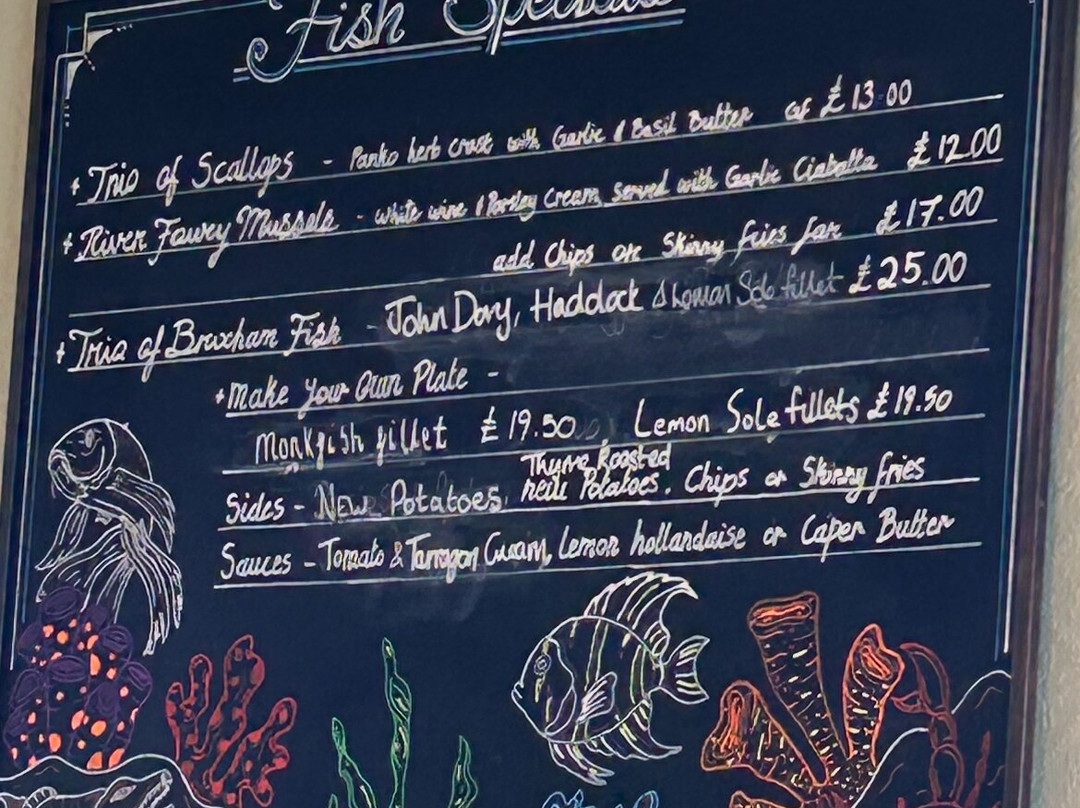 Fish Specials
+ Trio of Scallops - Panko herb crust with Garlic & Basil Butter GF £13.00
+ River Fowey Mussels - white wine & Parsley Cream, Served with Garlic Ciabatta £12.00
add Chips or Skinny fries for £17.00
+ Trio of Brixham Fish - John Dory, Haddock & Lemon Sole fillet £25.00
+ Make Your Own Plate -
Monkfish fillet £19.50 Lemon Sole fillets £19.50
Thyme Roasted
Sides - New Potatoes, new Potatoes, Chips or Skinny fries
Sauces - Tomato & Tarragon Cream, Lemon hollandaise or Caper Butter